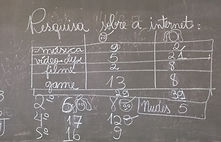 Pesquisa sobre a internet:
música 9 2
vídeo-clip 5 21
filme 2 8
game 13 8
29 39
2º 6 8 39 Nudis 5
4º 17 12
5º 16 9